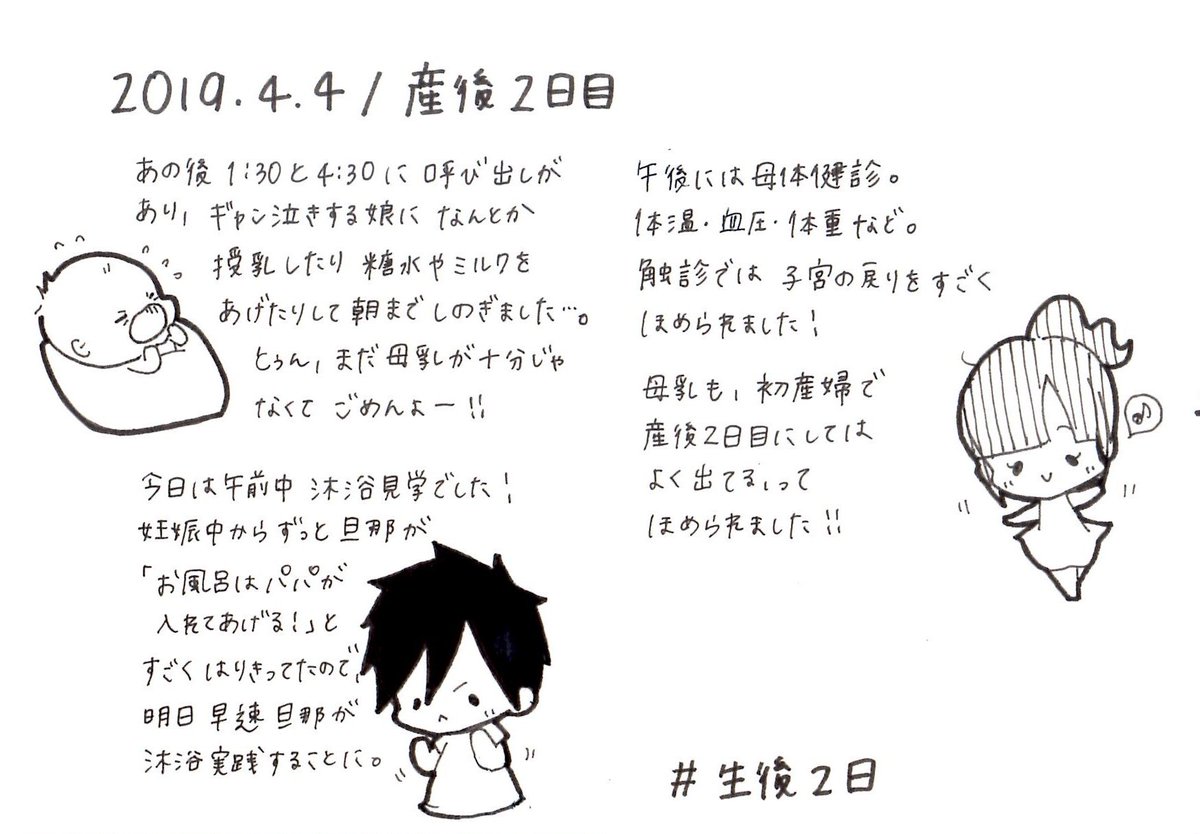 2019.4.4/産後2日目
あの後 1:30と4:30に 呼び出しが
あり、ギャン泣きする娘に なんとか
授乳したり 糖水やミルクを
あげたりして朝までしのぎました…。
とぅん、まだ母乳が十分じゃ
なくて ごめんよー!!
今日は午前中 沐浴見学でした!
妊娠中からずっと旦那が
「お風呂はパパが
入れてあげる!」と
すごくはりきってたので、
明日早速旦那が
沐浴実践することに。
午後には母体健診。
体温・血圧・体重など。
触診では 子宮の戻りをすごく
ほめられました!
母乳も、初産婦で
産後2日目にしては
よく出てるって
ほめられました!!
♪
#生後2日